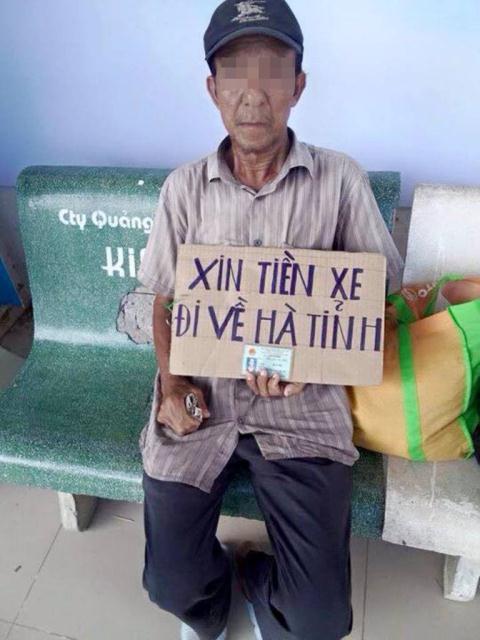 Cty Quảng
Ki
XIN TIỀN XE
ĐI VỀ HÀ TỈNH